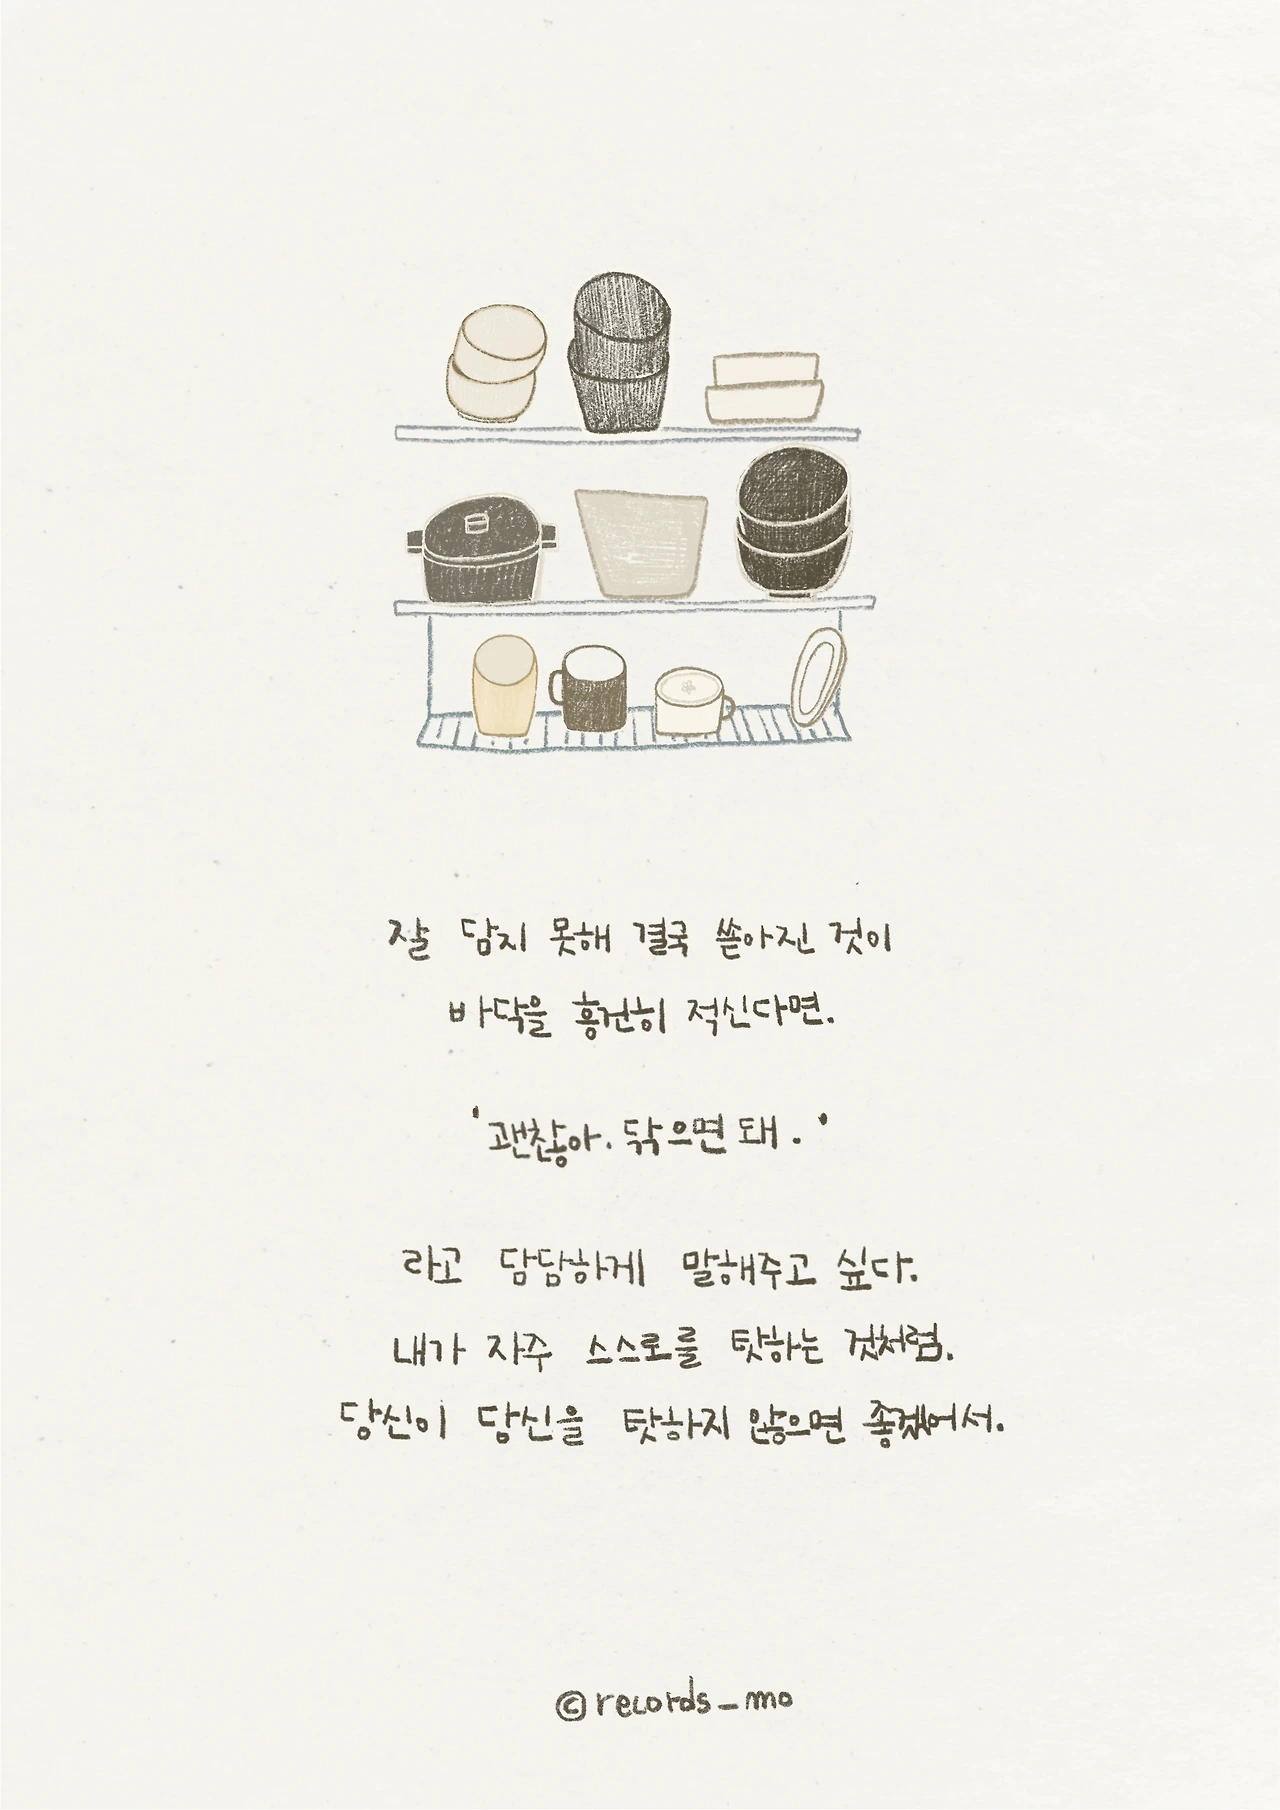 잘 담지 못해 결국 쏟아진 것이
바닥을 흥건히 적신다면.
'괜찮아. 닦으면 돼.'
라고 담담하게 말해주고 싶다.
내가 자주 스스로를 탓하는 것처럼.
당신이 당신을 탓하지 않으면 좋겠어서.
©records_mo